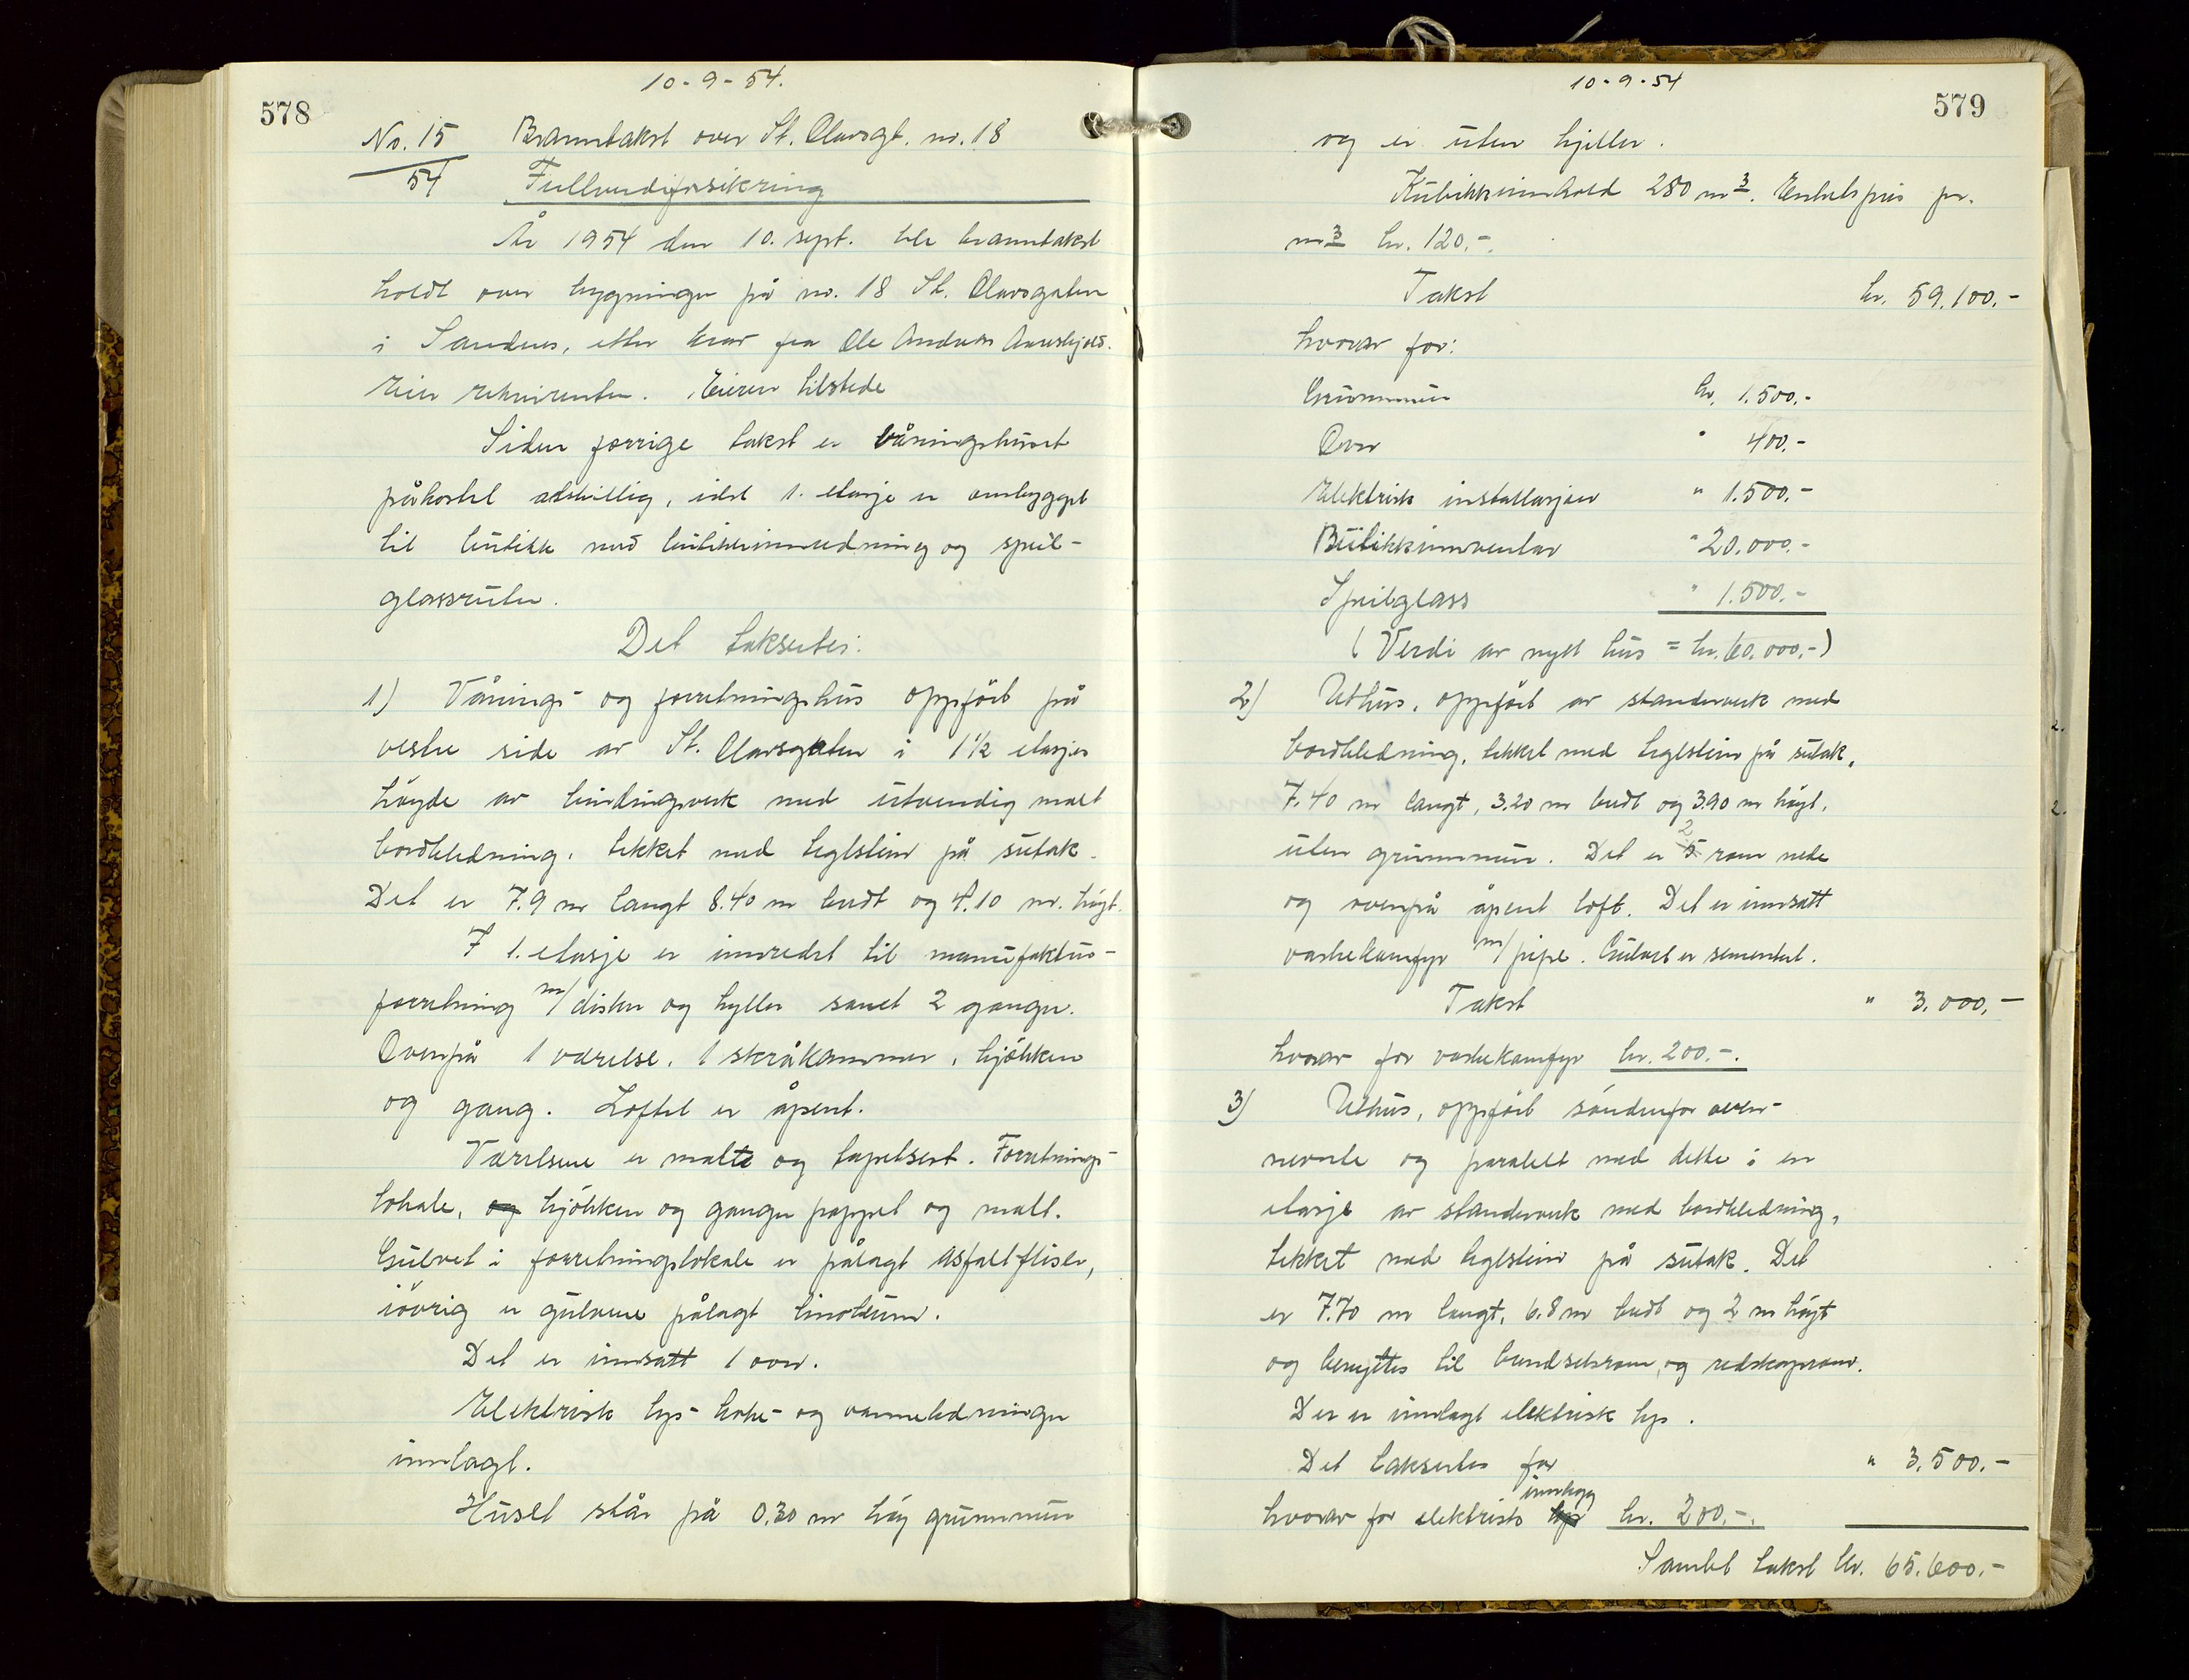 10-9-54.
578
No. 15 Branntakst over St. Olavsgt. no. 18
54 Fullverdiforsikring
År 1954 den 10. sept. ble branntakst
holdt over bygninger på no. 18 St. Olavsgaten
i Sandnes, etter krav fra Ole Andreas
Eier rekvirenten. Eieren tilstede
Siden forrige takst er våningshuset
påkostet atskillig, idet 1. etasje er ombygget
til butikk med butikkinnredning og speil-
glassruter.
Det takseres:
1) Vånings- og forretningshus oppført på
vestre side av St. Olavsgaten i 1½ etasjes
høyde av bindingsverk med utvendig malt
bordkledning, tekket med teglstein på sutak.
Det er 7.9 m langt 8.40 m bredt og 4.10 m. høgt.
I 1. etasje er innredet til manufaktur-
forretning m/disker og hyller samt 2 ganger.
Ovenpå 1 værelse, 1 skråkammer, kjøkken
og gang. Loftet er åpent.
Værelsene er malte og tapetsert. Forretnings-
lokale, og kjøkken og ganger pappet og malt.
Gulvet i forretningslokale er pålagt asfaltfliser,
iøvrig er gulvene pålagt linoleum.
Det er innsatt 1 ovn.
Elektrisk lys- koke- og varmeledninger
innlagt.
Huset står på 0.30 m høy grunnmur
10-9-54
579
og er uten kjeller.
Kubikkinnhold 280 m3. Enhetspris pr.
m3 kr. 120.-.
Takst kr. 59.100.-
hvorav for:
Grunnmur kr. 1.500.-
Ovn " 400.-
Elektrisk installasjon " 1.500.-
Butikkinventar " 20.000.-
Speilglass " 1.500.-
(Verdi av nytt hus = kr. 60.000.-)
2) Uthus, oppført av standerverk med
bordkledning, tekket med teglstein på sutak,
7.40 m langt, 3.20 m bredt og 3.90 m høgt,
uten grunnmur. Det er 5 2 rom nede
og ovenpå åpent loft. Det er innsatt
vaskekomfyr m/pipe. Gulvet er sementert.
Takst " 3.000.-
hvorav for vaskekomfyr kr. 200.-.
3) Uthus, oppført søndenfor oven-
nevnte og paralelt med dette i en
etasje av standerverk med bordkledning,
tekket med teglstein på sutak. Det
er 7.70 m langt, 6.8 m bredt og 2 m høgt
og benyttes til brendselsrom, og redskapsrom.
Der er innlagt elektrisk lys.
Det takseres for " 3.500.-
hvorav for elektrisk lys innlegg kr. 200.-.
Samlet takst kr. 65.600.-